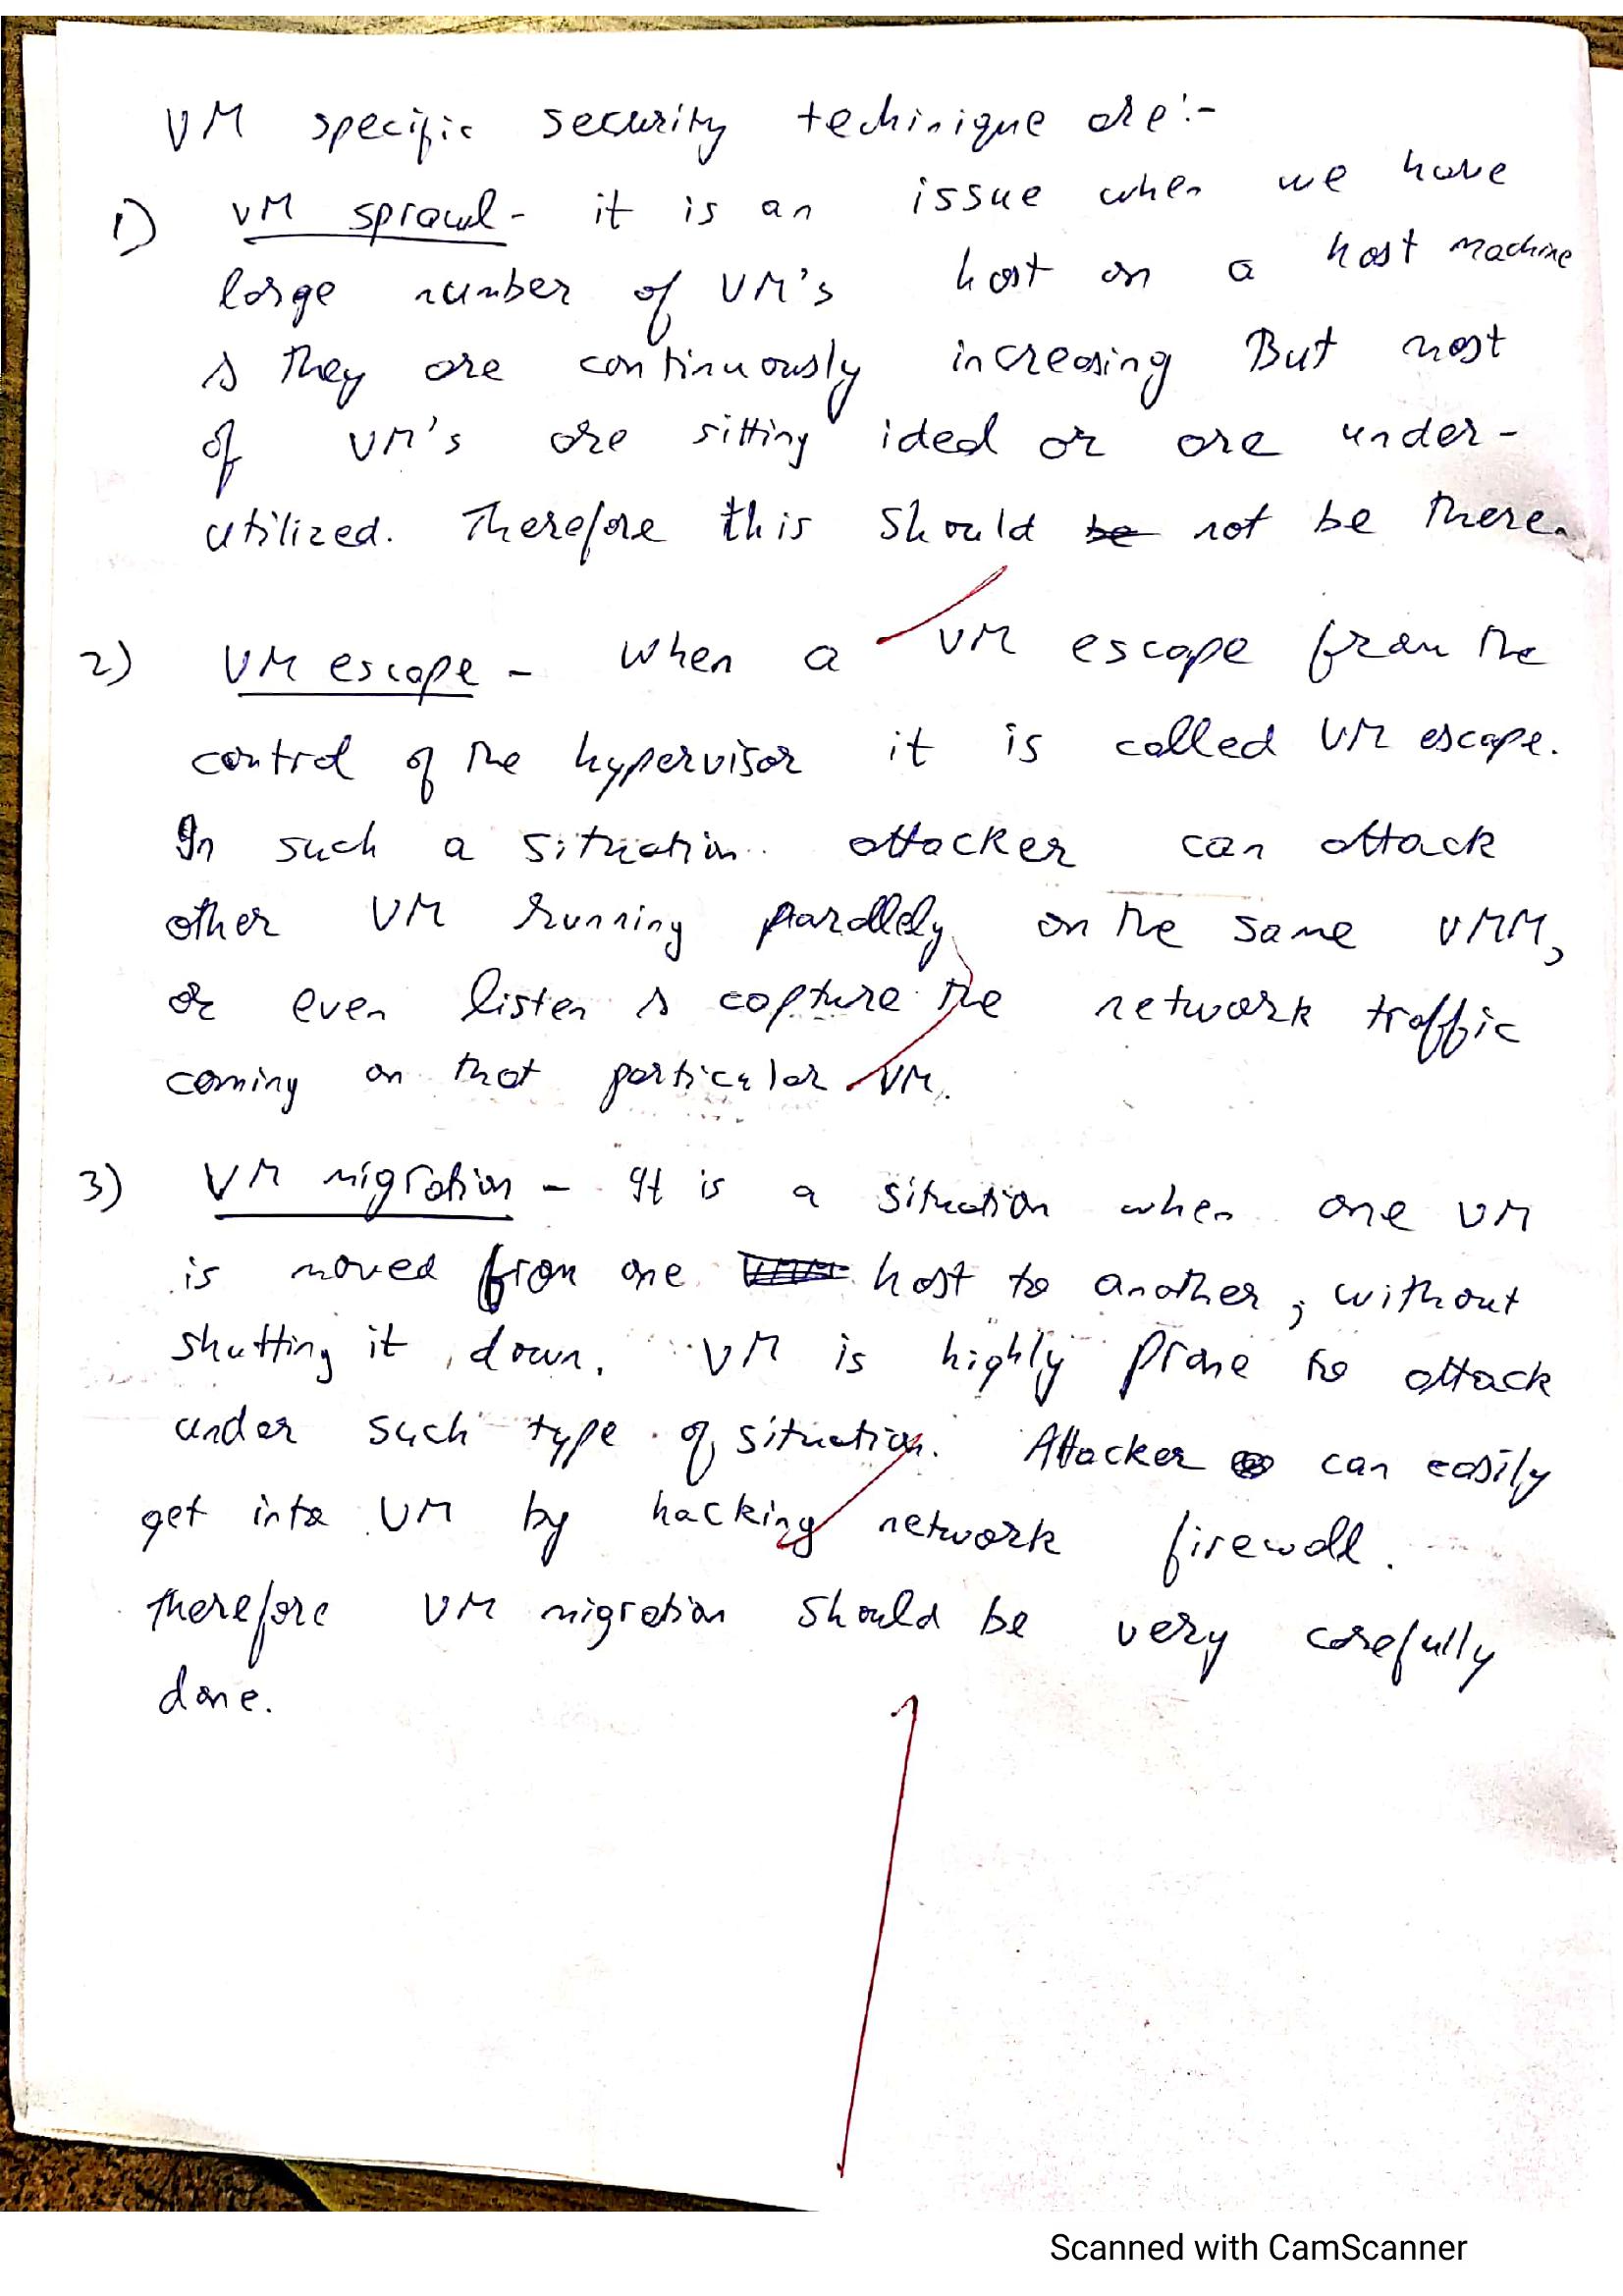 VM specific security techinique are:-
1) VM sprawl - it is an issue when we have
large number of VM's host on a host machine
& they are continuously increasing But most
of VM's are sitting ided or are under-
utilized. Therefore this should be not be there.
2) VM escape - when a VM escape from the
control of the hypervisor it is called VM escape.
In such a situation attacker can attack
other VM running parallely on the same VMM,
or even listen & capture the network traffic
coming on that particular VM.
3) VM migration - It is a situation when one VM
is moved from one host to another, without
shutting it down. VM is highly prone to attack
under such type of situation. Attacker can easily
get into VM by hacking network firewall.
therefore VM migration should be very carefully
done.
Scanned with CamScanner